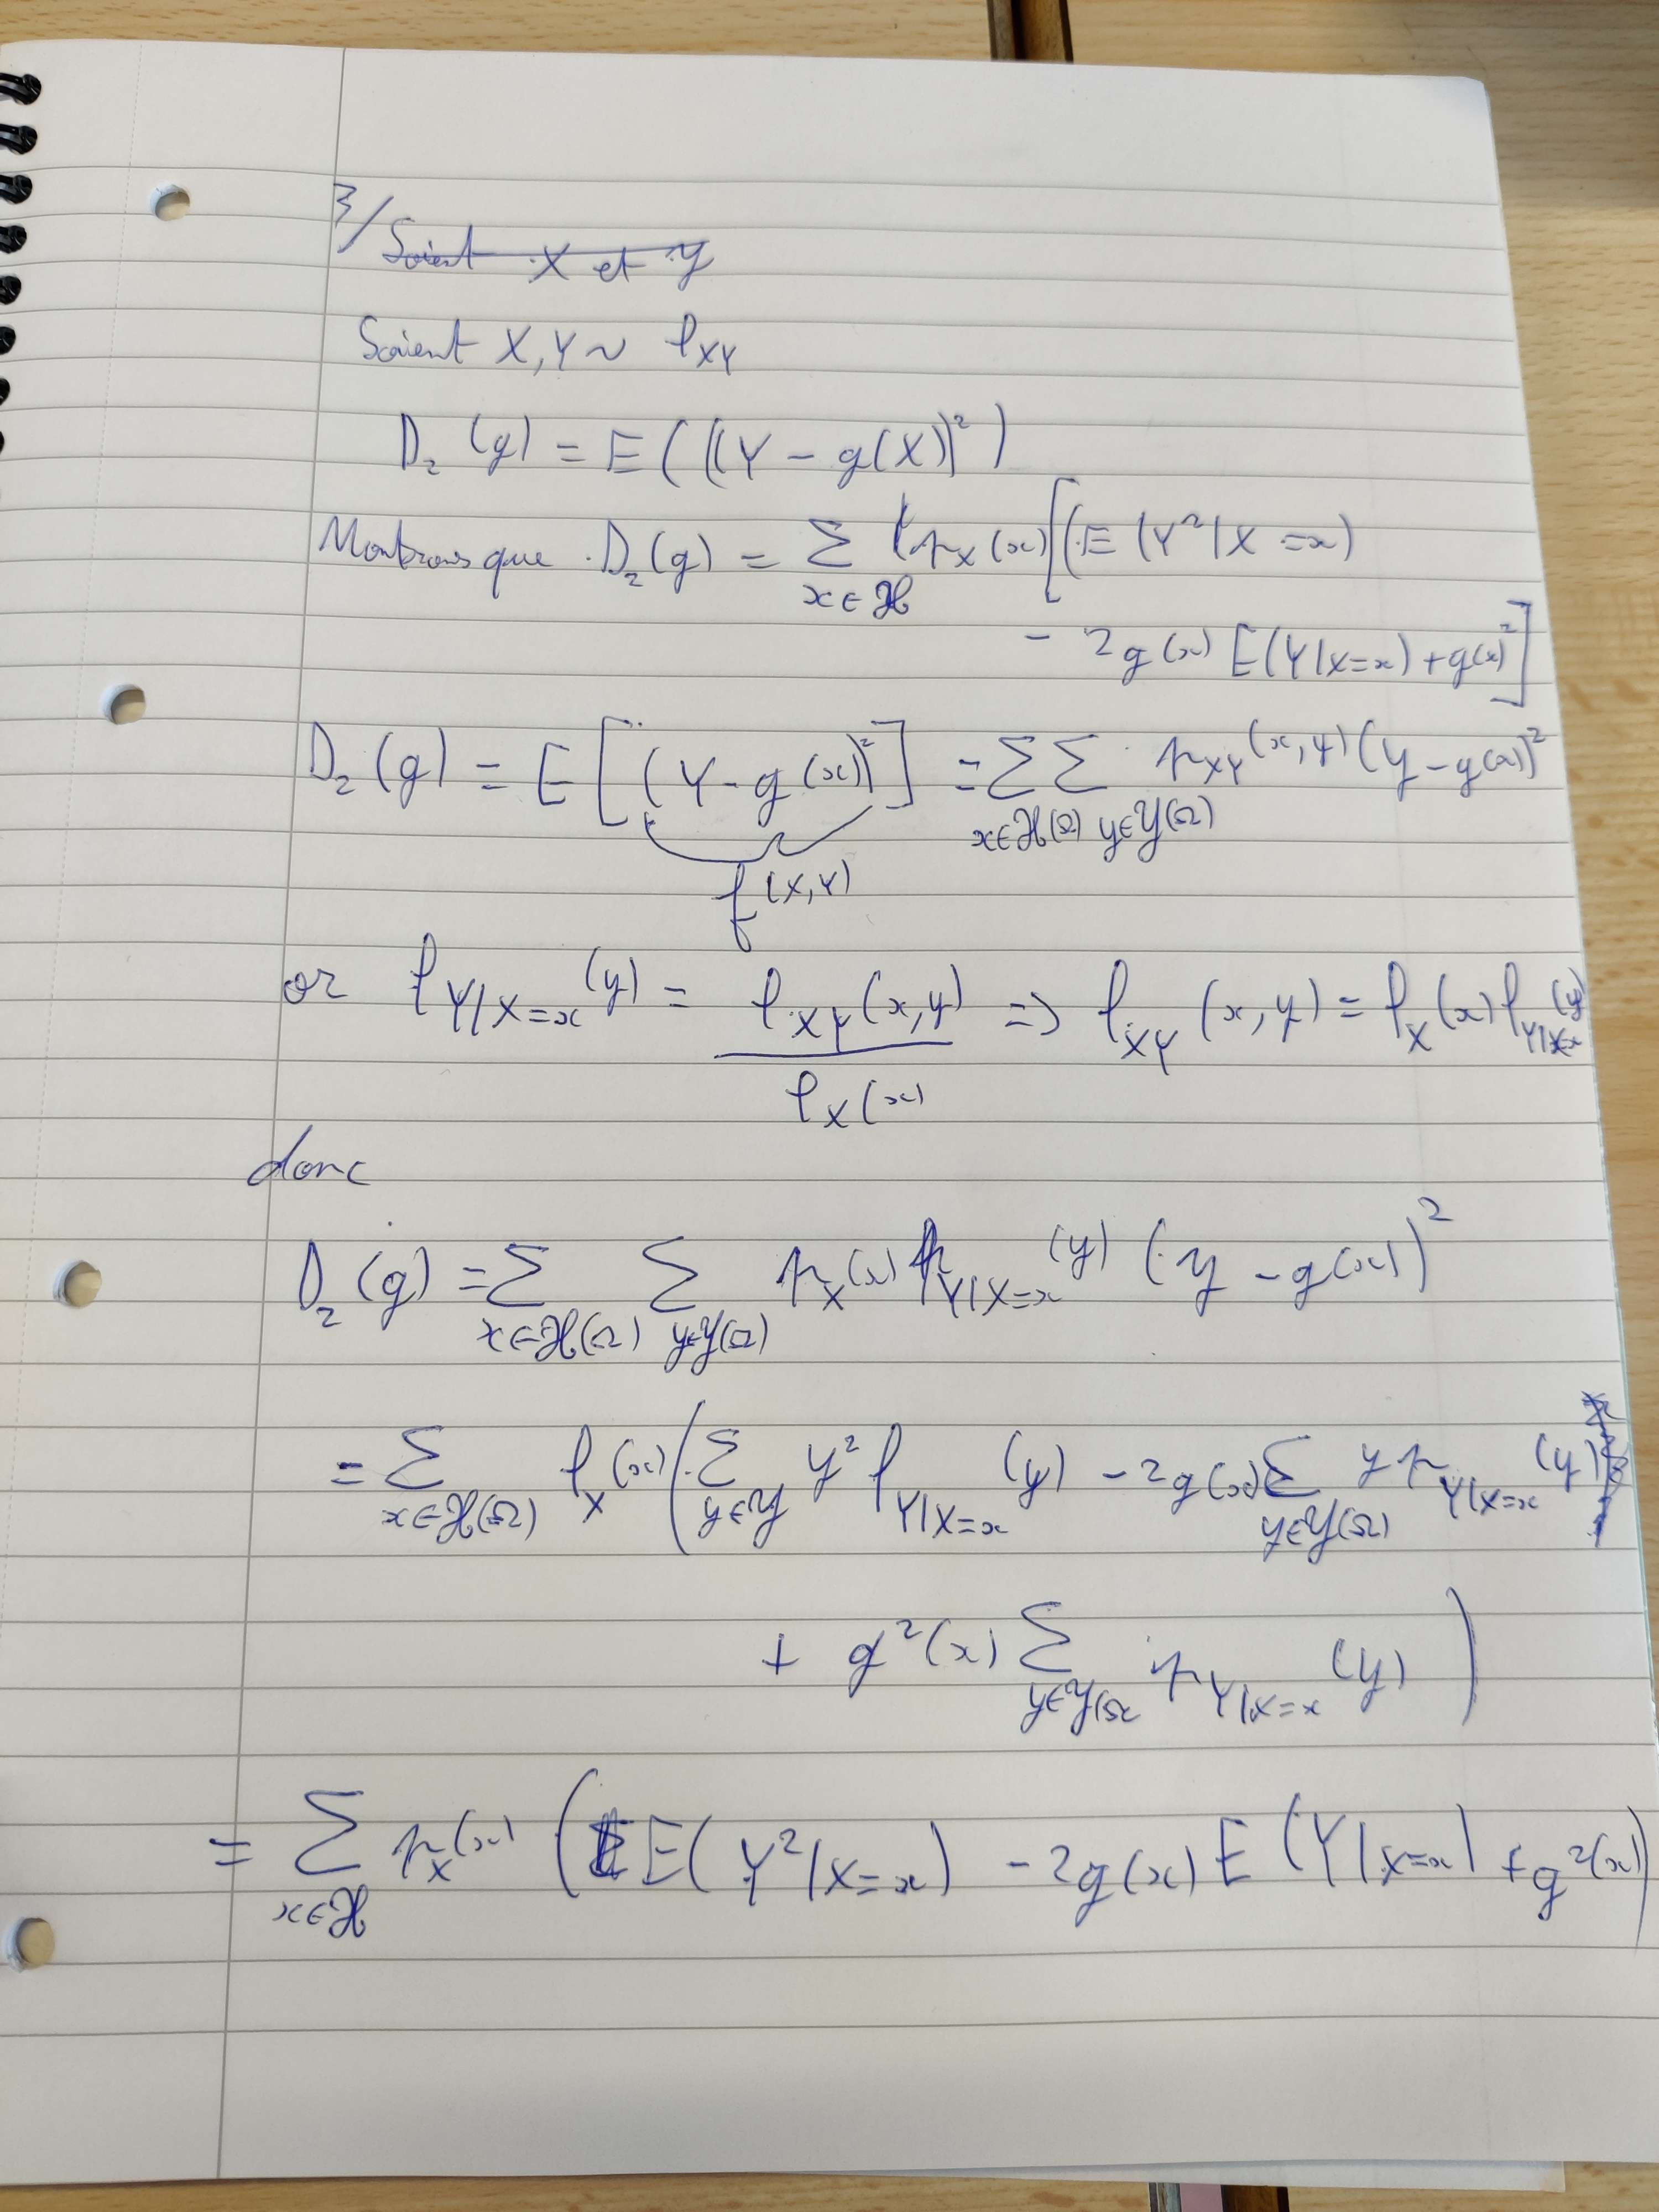 3/ Soient X et Y
Soient X, Y ~ p_XY
D_2 (g) = E ( ((Y - g(X))^2 )
Montrons que D_2(g) = Σ_{x∈𝓗} p_X(x) [(E (Y^2 | X = x)
- 2g(x) E(Y|X=x) + g(x)^2 ]
D_2 (g) = E [ (Y - g(x))^2 ] = Σ_{x∈𝓗(Ω)} Σ_{y∈𝒴(Ω)} p_XY(x,y) (y - g(x))^2
f(X,Y)
or p_{Y|X=x}(y) = p_XY(x,y) / p_X(x) => p_XY (x,y) = p_X(x) p_{Y|X=x}(y)
donc
D_2 (g) = Σ_{x∈𝓗(Ω)} Σ_{y∈𝒴(Ω)} p_X(x) p_{Y|X=x}(y) (y - g(x))^2
= Σ_{x∈𝓗(Ω)} p_X(x) ( Σ_{y∈𝒴} y^2 p_{Y|X=x}(y) - 2g(x) Σ_{y∈𝒴(Ω)} y p_{Y|X=x}(y)
+ g^2(x) Σ_{y∈𝒴(Ω} p_{Y|X=x}(y) )
= Σ_{x∈𝓗} p_X(x) ( E( Y^2|X=x) - 2g(x) E (Y|X=x) + g^2(x) )